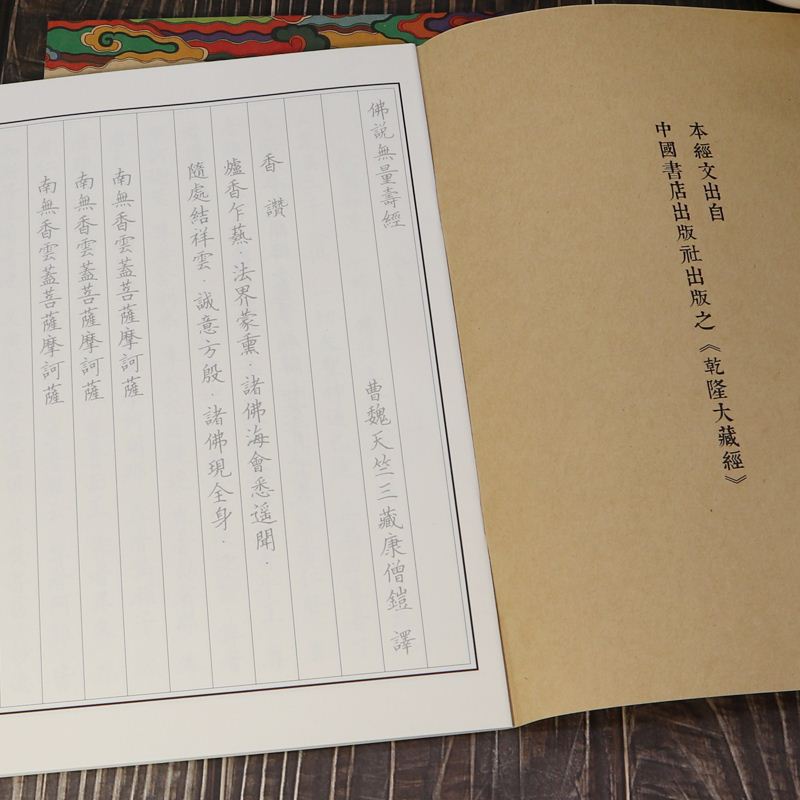 本經文出自
中國書店出版社出版之《乾隆大藏經》
佛説無量壽經
曹魏天竺三藏康僧鎧 譯
香 讚
爐香乍爇．法界蒙熏．諸佛海會悉遥聞．
隨處結祥雲．誠意方殷．諸佛現全身．
南無香雲蓋菩薩摩訶薩
南無香雲蓋菩薩摩訶薩
南無香雲蓋菩薩摩訶薩